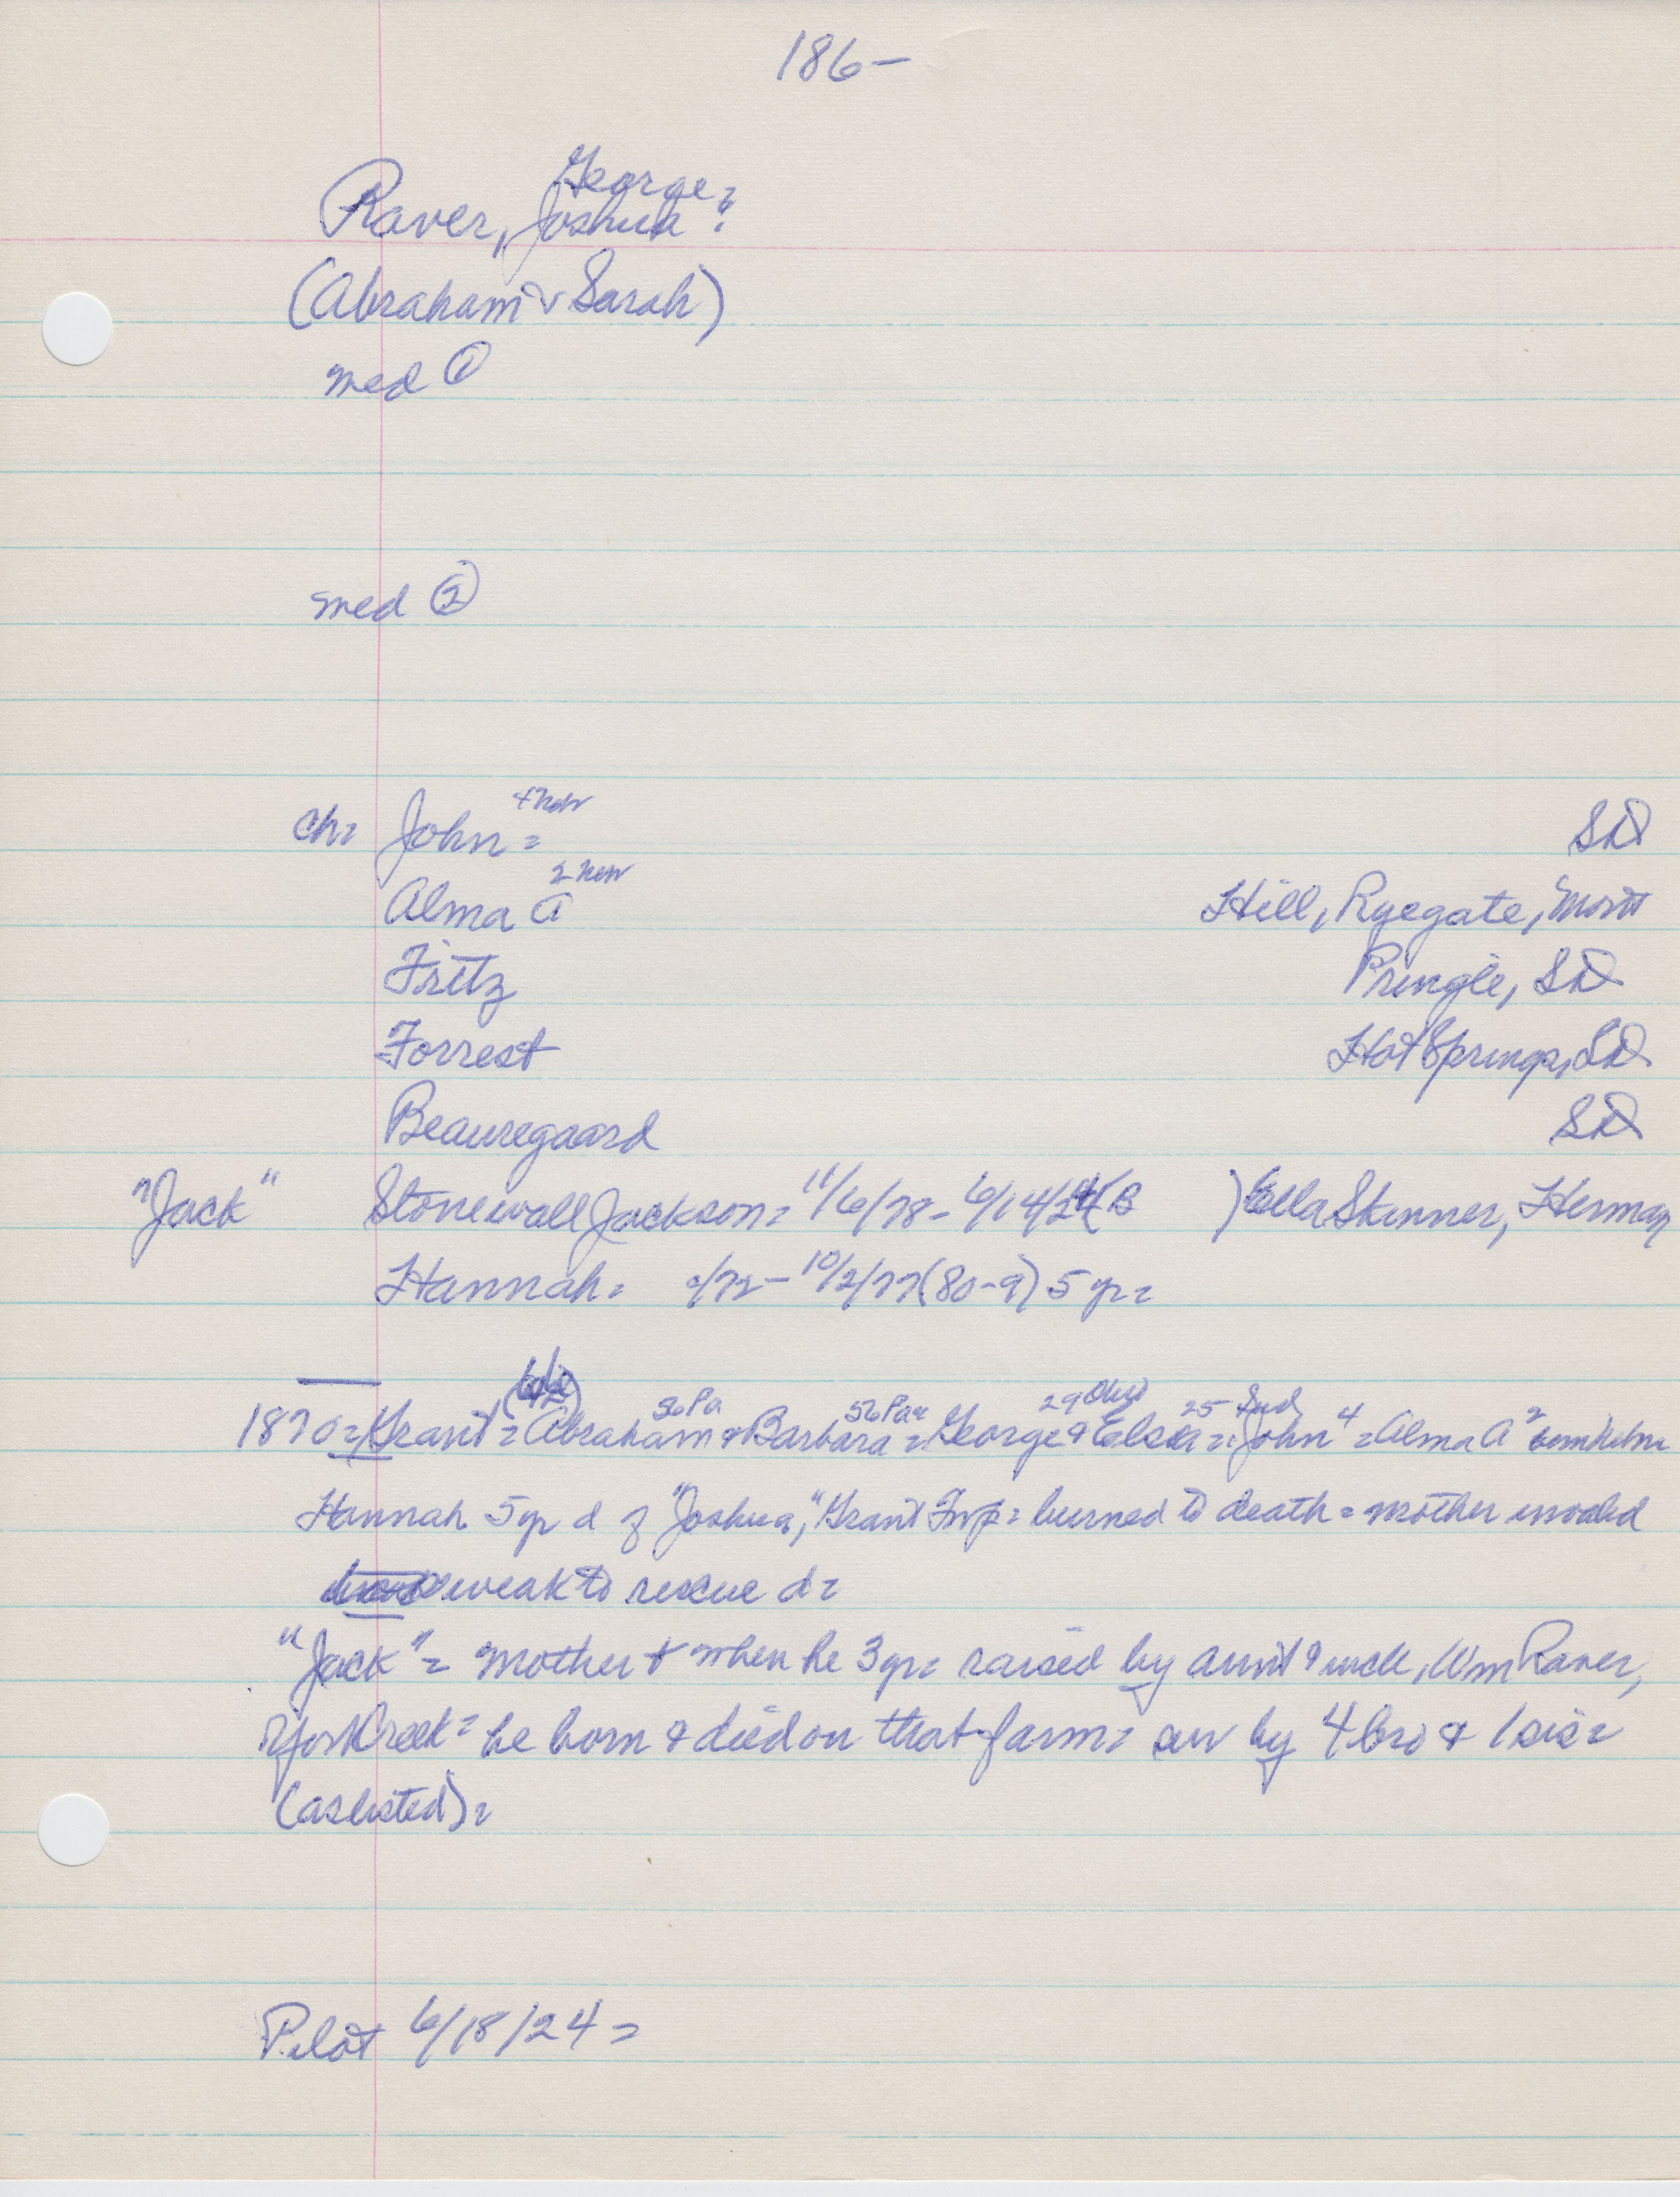 186-
George =
Raver, Joshua ?
(Abraham & Sarah)
med ①
med ②
4 Nebr
ch= John = SD
2 Nebr
Alma A Hill, Ryegate, Mont
Fritz Pringle, SD
Forrest Hot Springs, SD
Beauregaard SD
"Jack" Stonewall Jackson= 11/6/78 - 6/14/24 (B ) Ella Skinner, Herman
Hannah= /72 - 10/2/77 (80-9) 5 yr=
56 Pa 56 Pa= 29 Ohio 25 Ind
1870= Grant= Abraham & Barbara = George & Elsea = John 4 = Alma A 2
Hannah 5 yr d of "Joshua," Grant Twp= burned to death = mother invalid
weak to rescue d=
"Jack"= mother + when he 3 yr= raised by aunt & uncle, Wm Raver,
York Creek= he born & died on that farm= sur by 4 bro & 1 sis=
(as listed)=
Pilot 6/18/24 =